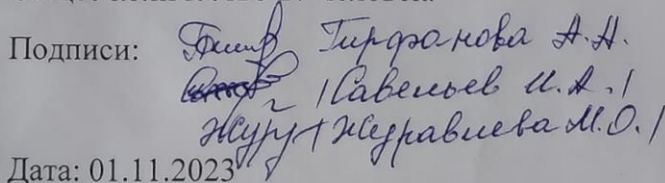 Подписи: Гирфанова А.А.
/Савельев И.А./
Журавлева М.О./
Дата: 01.11.2023